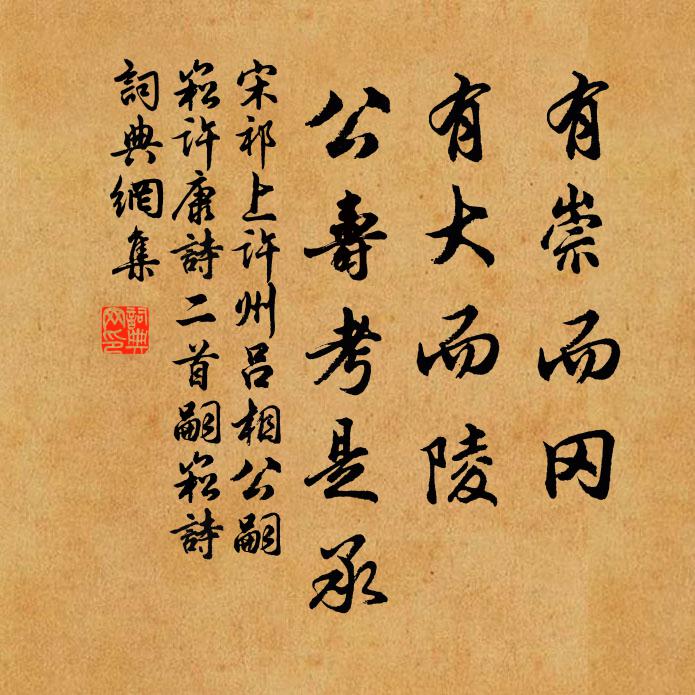 有崇而冈
有大而陵
公壽考是承
宋祁上许州吕相公嗣
崧许康詩二首嗣崧詩
詞典網集
詞典網印